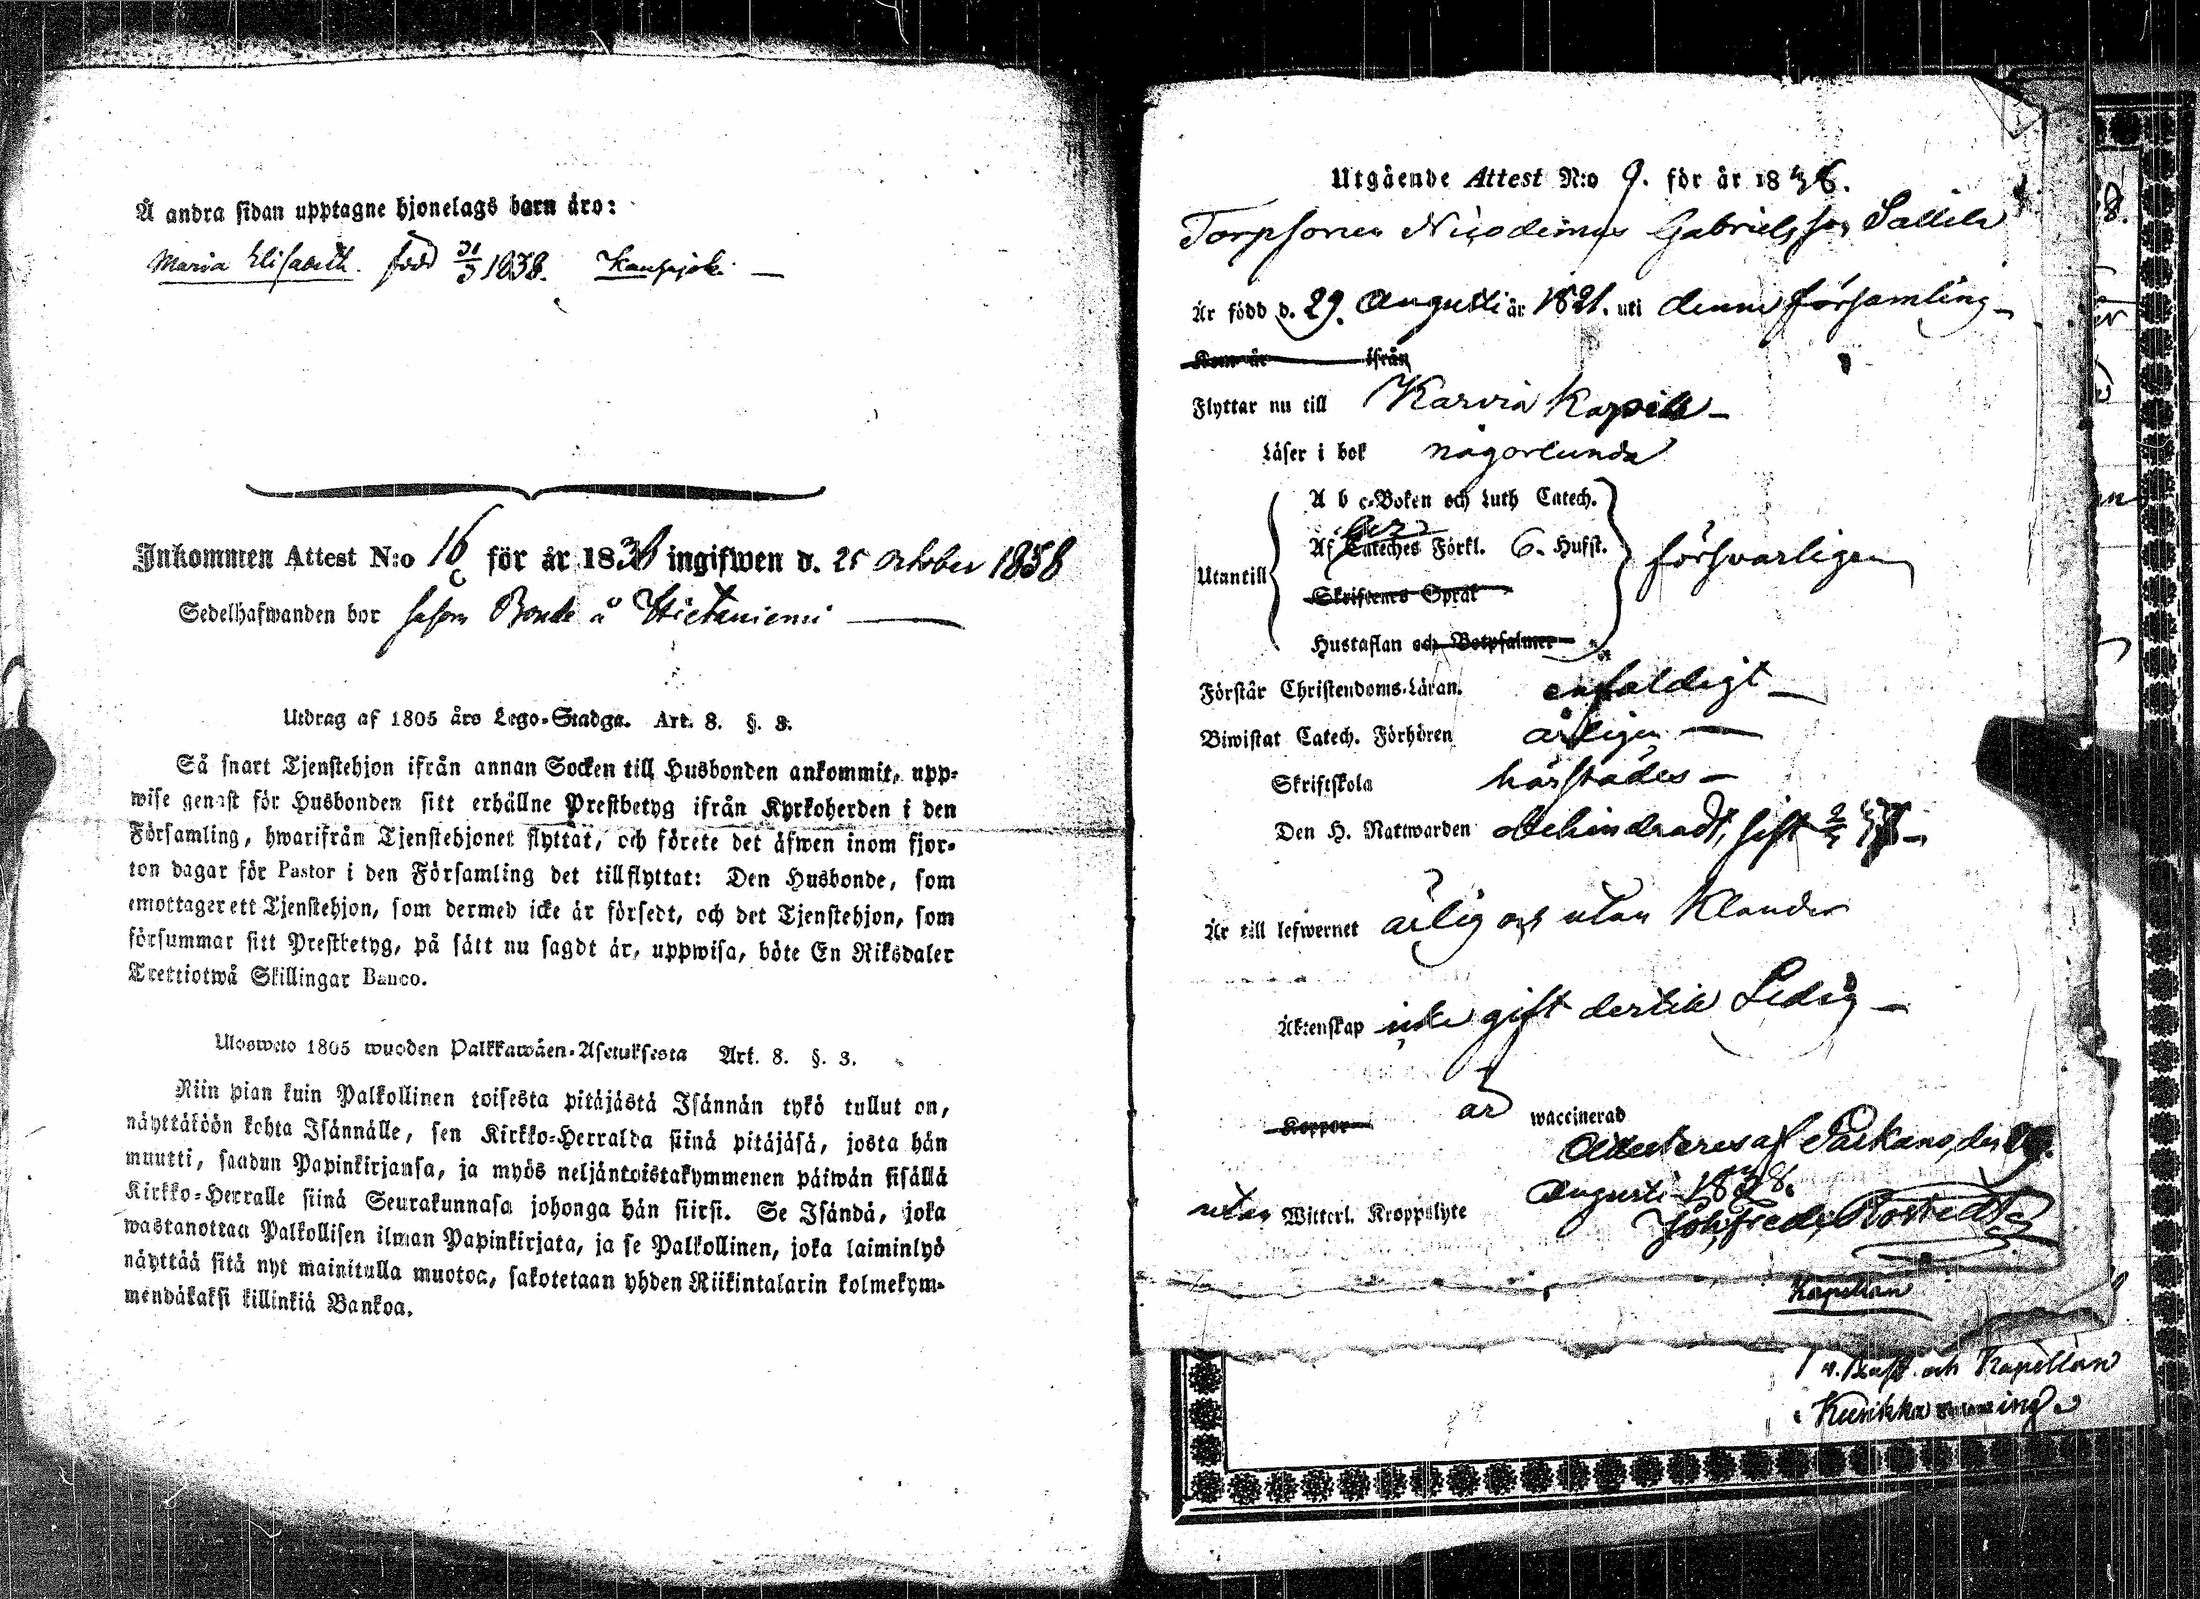 Å andra sidan upptagne hjonelags barn äro:
Maria Elisabeth. född 31/3 1838. Kauhajoki —
Inkommen Attest N:o 16 för år 1838 ingifwen d. 25 October 1838
Sedelhafwanden bor såsom Bonde å Hietaniemi —
Utdrag af 1805 års Lego-Stadga. Art. 8. §. 3.
Så snart Tjenstehjon ifrån annan Socken till Husbonden ankommit, upp-
wise genast för Husbonden sitt erhållne Prestbetyg ifrån Kyrkoherden i den
Församling, hwarifrån Tjenstehjonet flyttat, och förete det äfwen inom fjor-
ton dagar för Pastor i den Församling det tillflyttat: Den Husbonde, som
emottager ett Tjenstehjon, som dermed icke är försedt, och det Tjenstehjon, som
försummar sitt Prestbetyg, på sätt nu sagdt är, uppwisa, böte En Riksdaler
Trettiotwå Skillingar Banco.
Ulosweto 1805 wuoden Palkkawäen-Asetuksesta Art. 8. §. 3.
Niin pian kuin Palkollinen toisesta pitäjästä Isännän tykö tullut on,
näyttäköön kohta Isännälle, sen Kirkko-Herralda siinä pitäjäsä, josta hän
muutti, saadun Papinkirjansa, ja myös neljäntoistakymmenen päiwän sisällä
Kirkko-Herralle siinä Seurakunnasa johonga hän siirsi. Se Isändä, joka
wastanottaa Palkollisen ilman Papinkirjata, ja se Palkollinen, joka laiminlyö
näyttää sitä nyt mainitulla muotoa, sakotetaan yhden Riikintalarin kolmekym-
mendäkaksi killinkiä Bankoa.
Utgående Attest N:o 9. för år 1838.
Torpsonen Nicodemus Gabrielsson Sallila
Är född d. 29. Augusti år 1821. uti denna församling —
Kom år ifrån
Flyttar nu till Karvia Kapell —
Läser i bok någorlunda
A b c-Boken och Luth Catech.
Af Cateches Förkl. 6. Hufst.
Utantill försvarligen
Skriftenes Språk
Hustaflan och Botpsalmer
Förstår Christendoms-Läran. enfaldigt —
Biwistat Catech. Förhören årligen —
Skriftskola härstädes —
Den H. Nattwarden obehindradt, sist
Är till lefwernet ärlig och utan klander
Äktenskap icke gift dertill Ledig —
Koppor är waccinerad
Attesteres af Parkano, den 29.
Augusti 1838.
utan Witterl. Kroppslyte
Joh. Fredr. Rostedt
Kapellan
och Kapellan
Kurikka